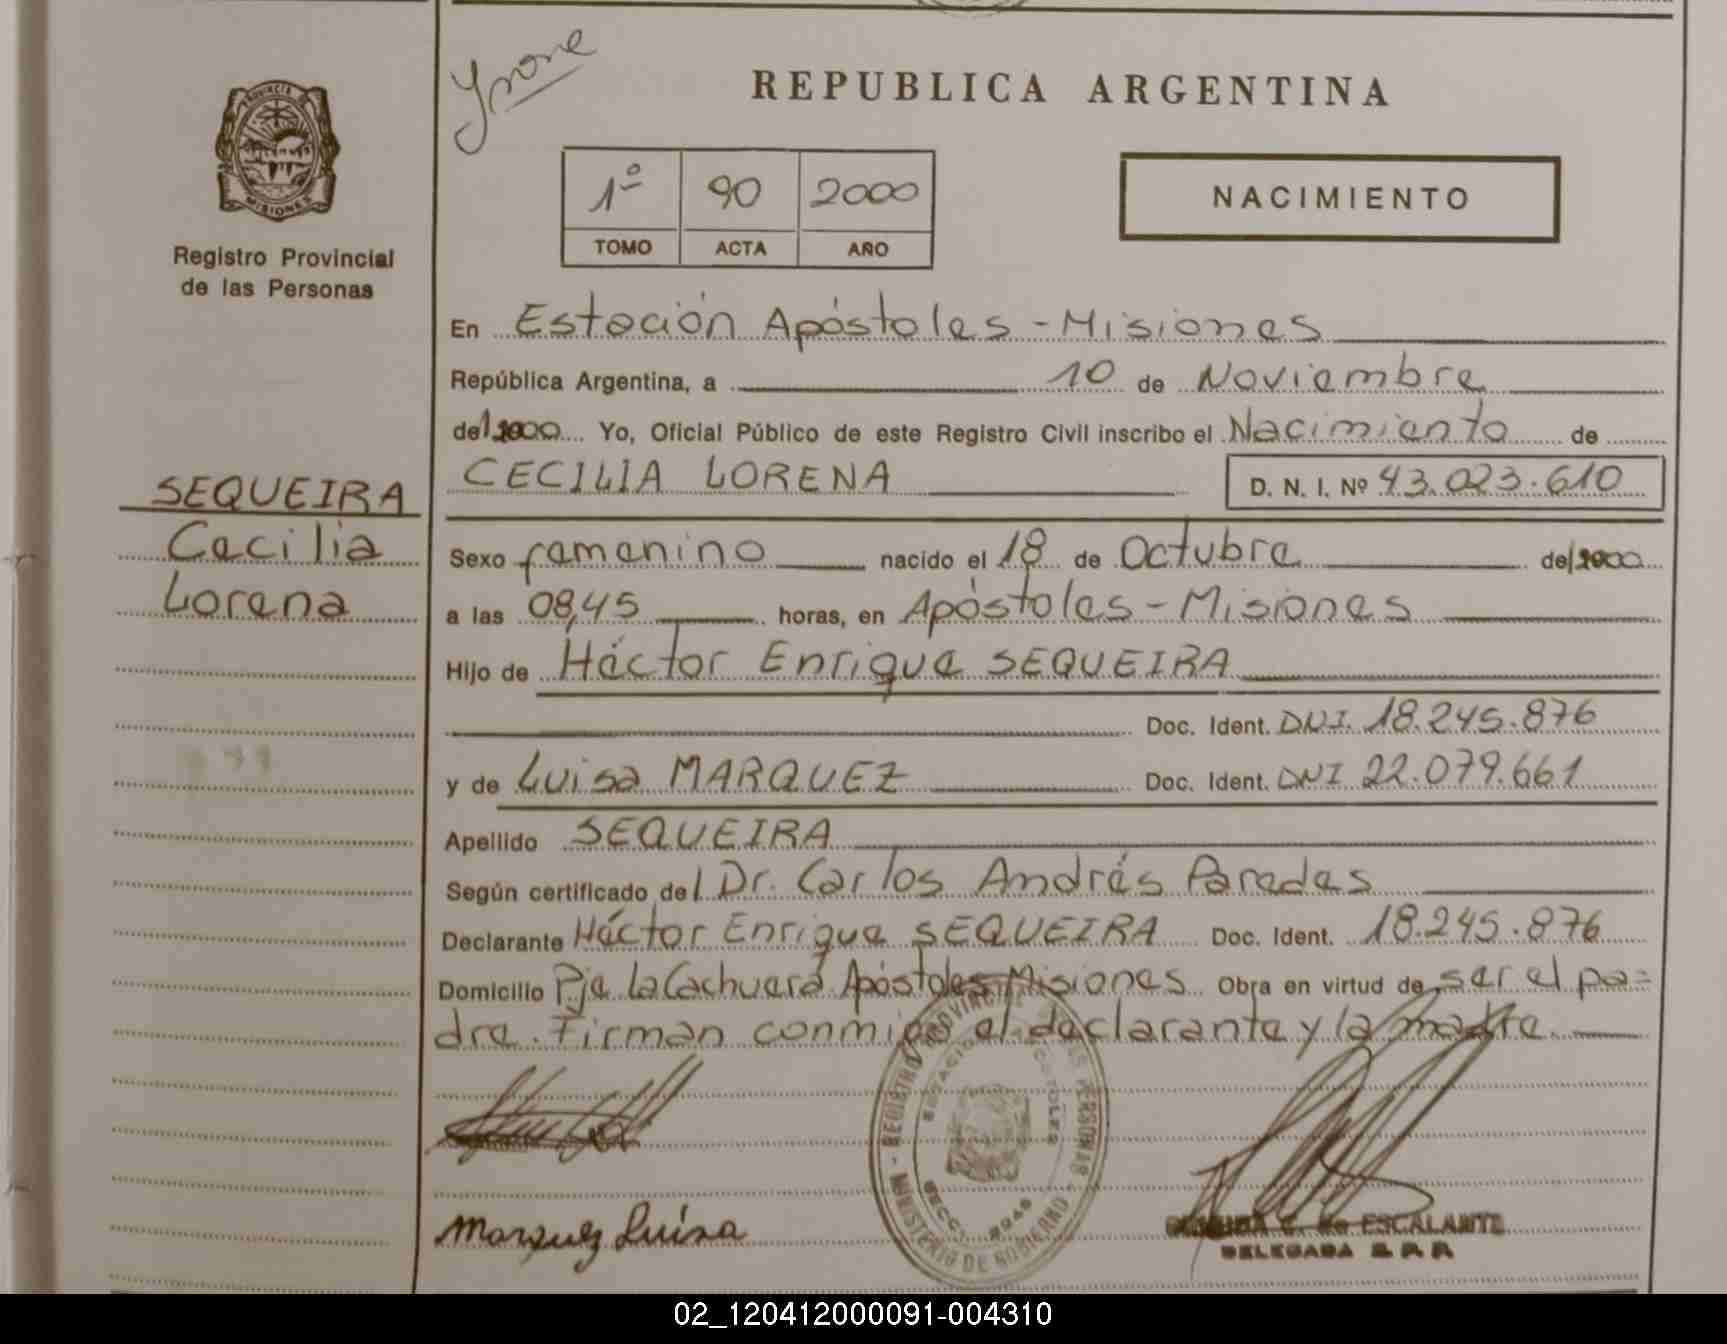 Yvone
REPUBLICA ARGENTINA
PROVINCIA DE
MISIONES
Registro Provincial
de las Personas
1º 90 2000
TOMO ACTA AÑO
NACIMIENTO
En Estación Apóstoles - Misiones
República Argentina, a 10 de Noviembre
de 2000 Yo, Oficial Público de este Registro Civil inscribo el Nacimiento de
CECILIA LORENA D. N. I. Nº 43.023.610
SEQUEIRA
Cecilia
Lorena
Sexo femenino nacido el 18 de Octubre de 2000
a las 08,45 horas, en Apóstoles - Misiones
Hijo de Héctor Enrique SEQUEIRA
Doc. Ident. DNI. 18.245.876
y de Luisa MARQUEZ Doc. Ident. DNI 22.079.661
Apellido SEQUEIRA
Según certificado del Dr. Carlos Andrés Paredes
Declarante Héctor Enrique SEQUEIRA Doc. Ident. 18.245.876
Domicilio Pje La Cachuera Apóstoles Misiones Obra en virtud de ser el pa=
dre. Firman conmigo el declarante y la madre.
REGISTRO PROVINCIAL DE LAS PERSONAS
MINISTERIO DE GOBIERNO
ESTACION APOSTOLES
SECC.
Marquez Luisa
de ESCALANTE
DELEGADA R P P
02_120412000091-004310